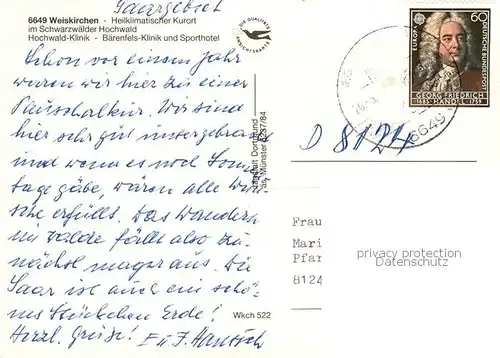 Saargebiet
6649 Weiskirchen - Heilklimatischer Kurort
im Schwarzwälder Hochwald
Hochwald-Klinik - Bärenfels-Klinik und Sporthotel
DIE QUALITÄTS
ANSICHTSKARTE
Schon vor einem Jahr
waren wir hier zu einer
Pauschalkur. Wir sind
hier sehr gut untergebracht
und wenn es noch Sonnen
tage gäbe, wären alle Wün-
sche erfüllt. Das Wandern
im Walde fällt also zu-
nächst mager aus. Die
Saar ist auch ein schö-
nes Stückchen Erde!
Herzl. Grüße! E. u. J. Hantsch
Münster 5237/84
Wkch 522
EUROPA
60
DEUTSCHE BUNDESPOST
GEORG FRIEDRICH
1685 HÄNDEL 1759
6649
D 8124
Frau
Mari
Pfar
8124
privacy protection
Datenschutz